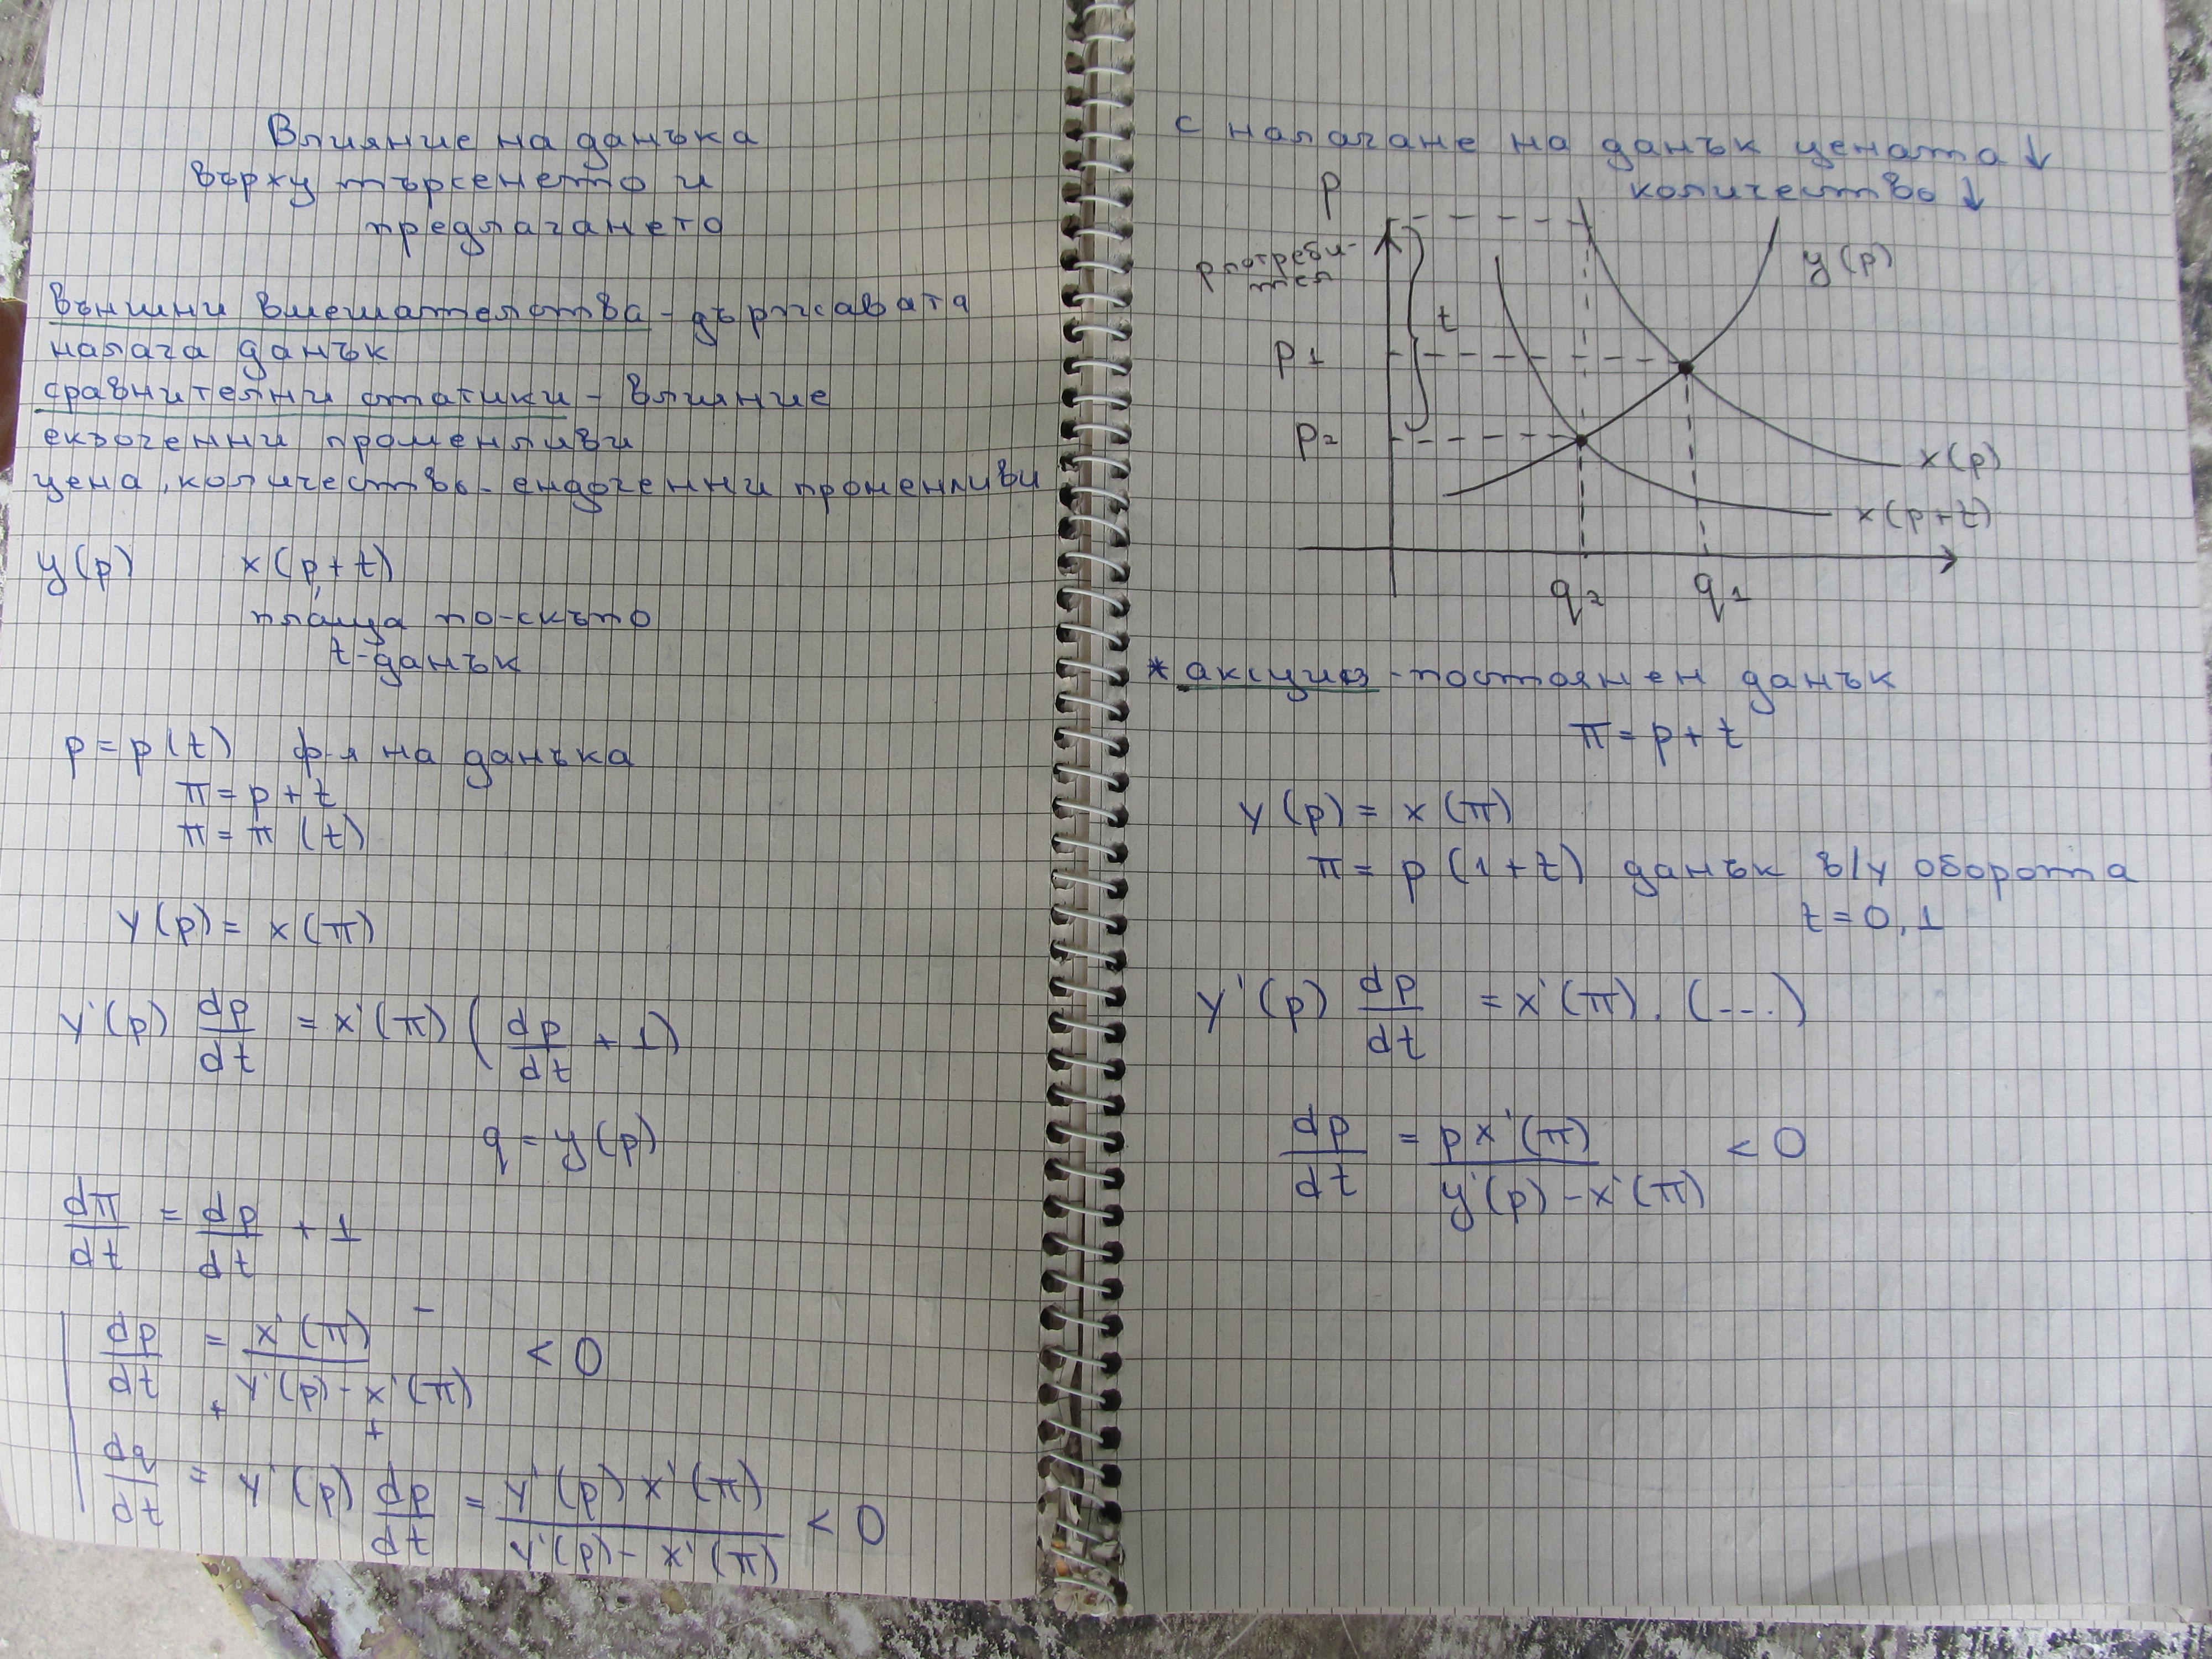 Влияние на данъка
върху търсенето и
предлагането
външни вмешателства - държавата
налага данък
сравнителни статики - влияние
екзогенни променливи
цена, количество - ендогенни променливи
y(p) x(p+t)
плаща по-скъпо
t-данък
p = p(t) ф-я на данъка
π = p + t
π = π (t)
y(p) = x(π)
y'(p) dp/dt = x'(π) (dp/dt + 1)
q = y(p)
dπ/dt = dp/dt + 1
dp/dt = x'(π) / y'(p) - x'(π) < 0
- + +
dq/dt = y'(p) dp/dt = y'(p) x'(π) / y'(p) - x'(π) < 0
с налагане на данък цената ↓
количество ↓
p
p потреби-
тел
t
p1
p2
y(p)
x(p)
x(p+t)
q2 q1
* акциз - постоянен данък
π = p + t
y(p) = x(π)
π = p (1+t) данък в/у оборота
t = 0,1
y'(p) dp/dt = x'(π). (....)
dp/dt = p x'(π) / y'(p) - x'(π) < 0